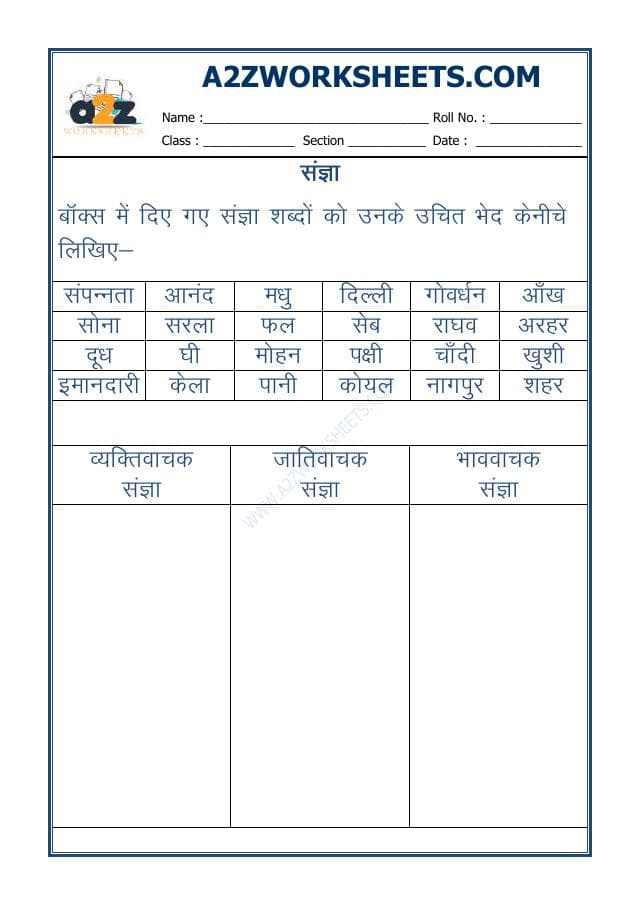 A2ZWORKSHEETS.COM
a2z
WORKSHEETS
Name :________________________________ Roll No. : _____________
Class : _____________ Section ___________ Date : _______________
संज्ञा
बॉक्स में दिए गए संज्ञा शब्दों को उनके उचित भेद केनीचे
लिखिए–
संपन्नता आनंद मधु दिल्ली गोवर्धन आँख
सोना सरला फल सेब राघव अरहर
दूध घी मोहन पक्षी चाँदी खुशी
इमानदारी केला पानी कोयल नागपुर शहर
WWW.A2ZWORKSHEETS.COM
व्यक्तिवाचक जातिवाचक भाववाचक
संज्ञा संज्ञा संज्ञा